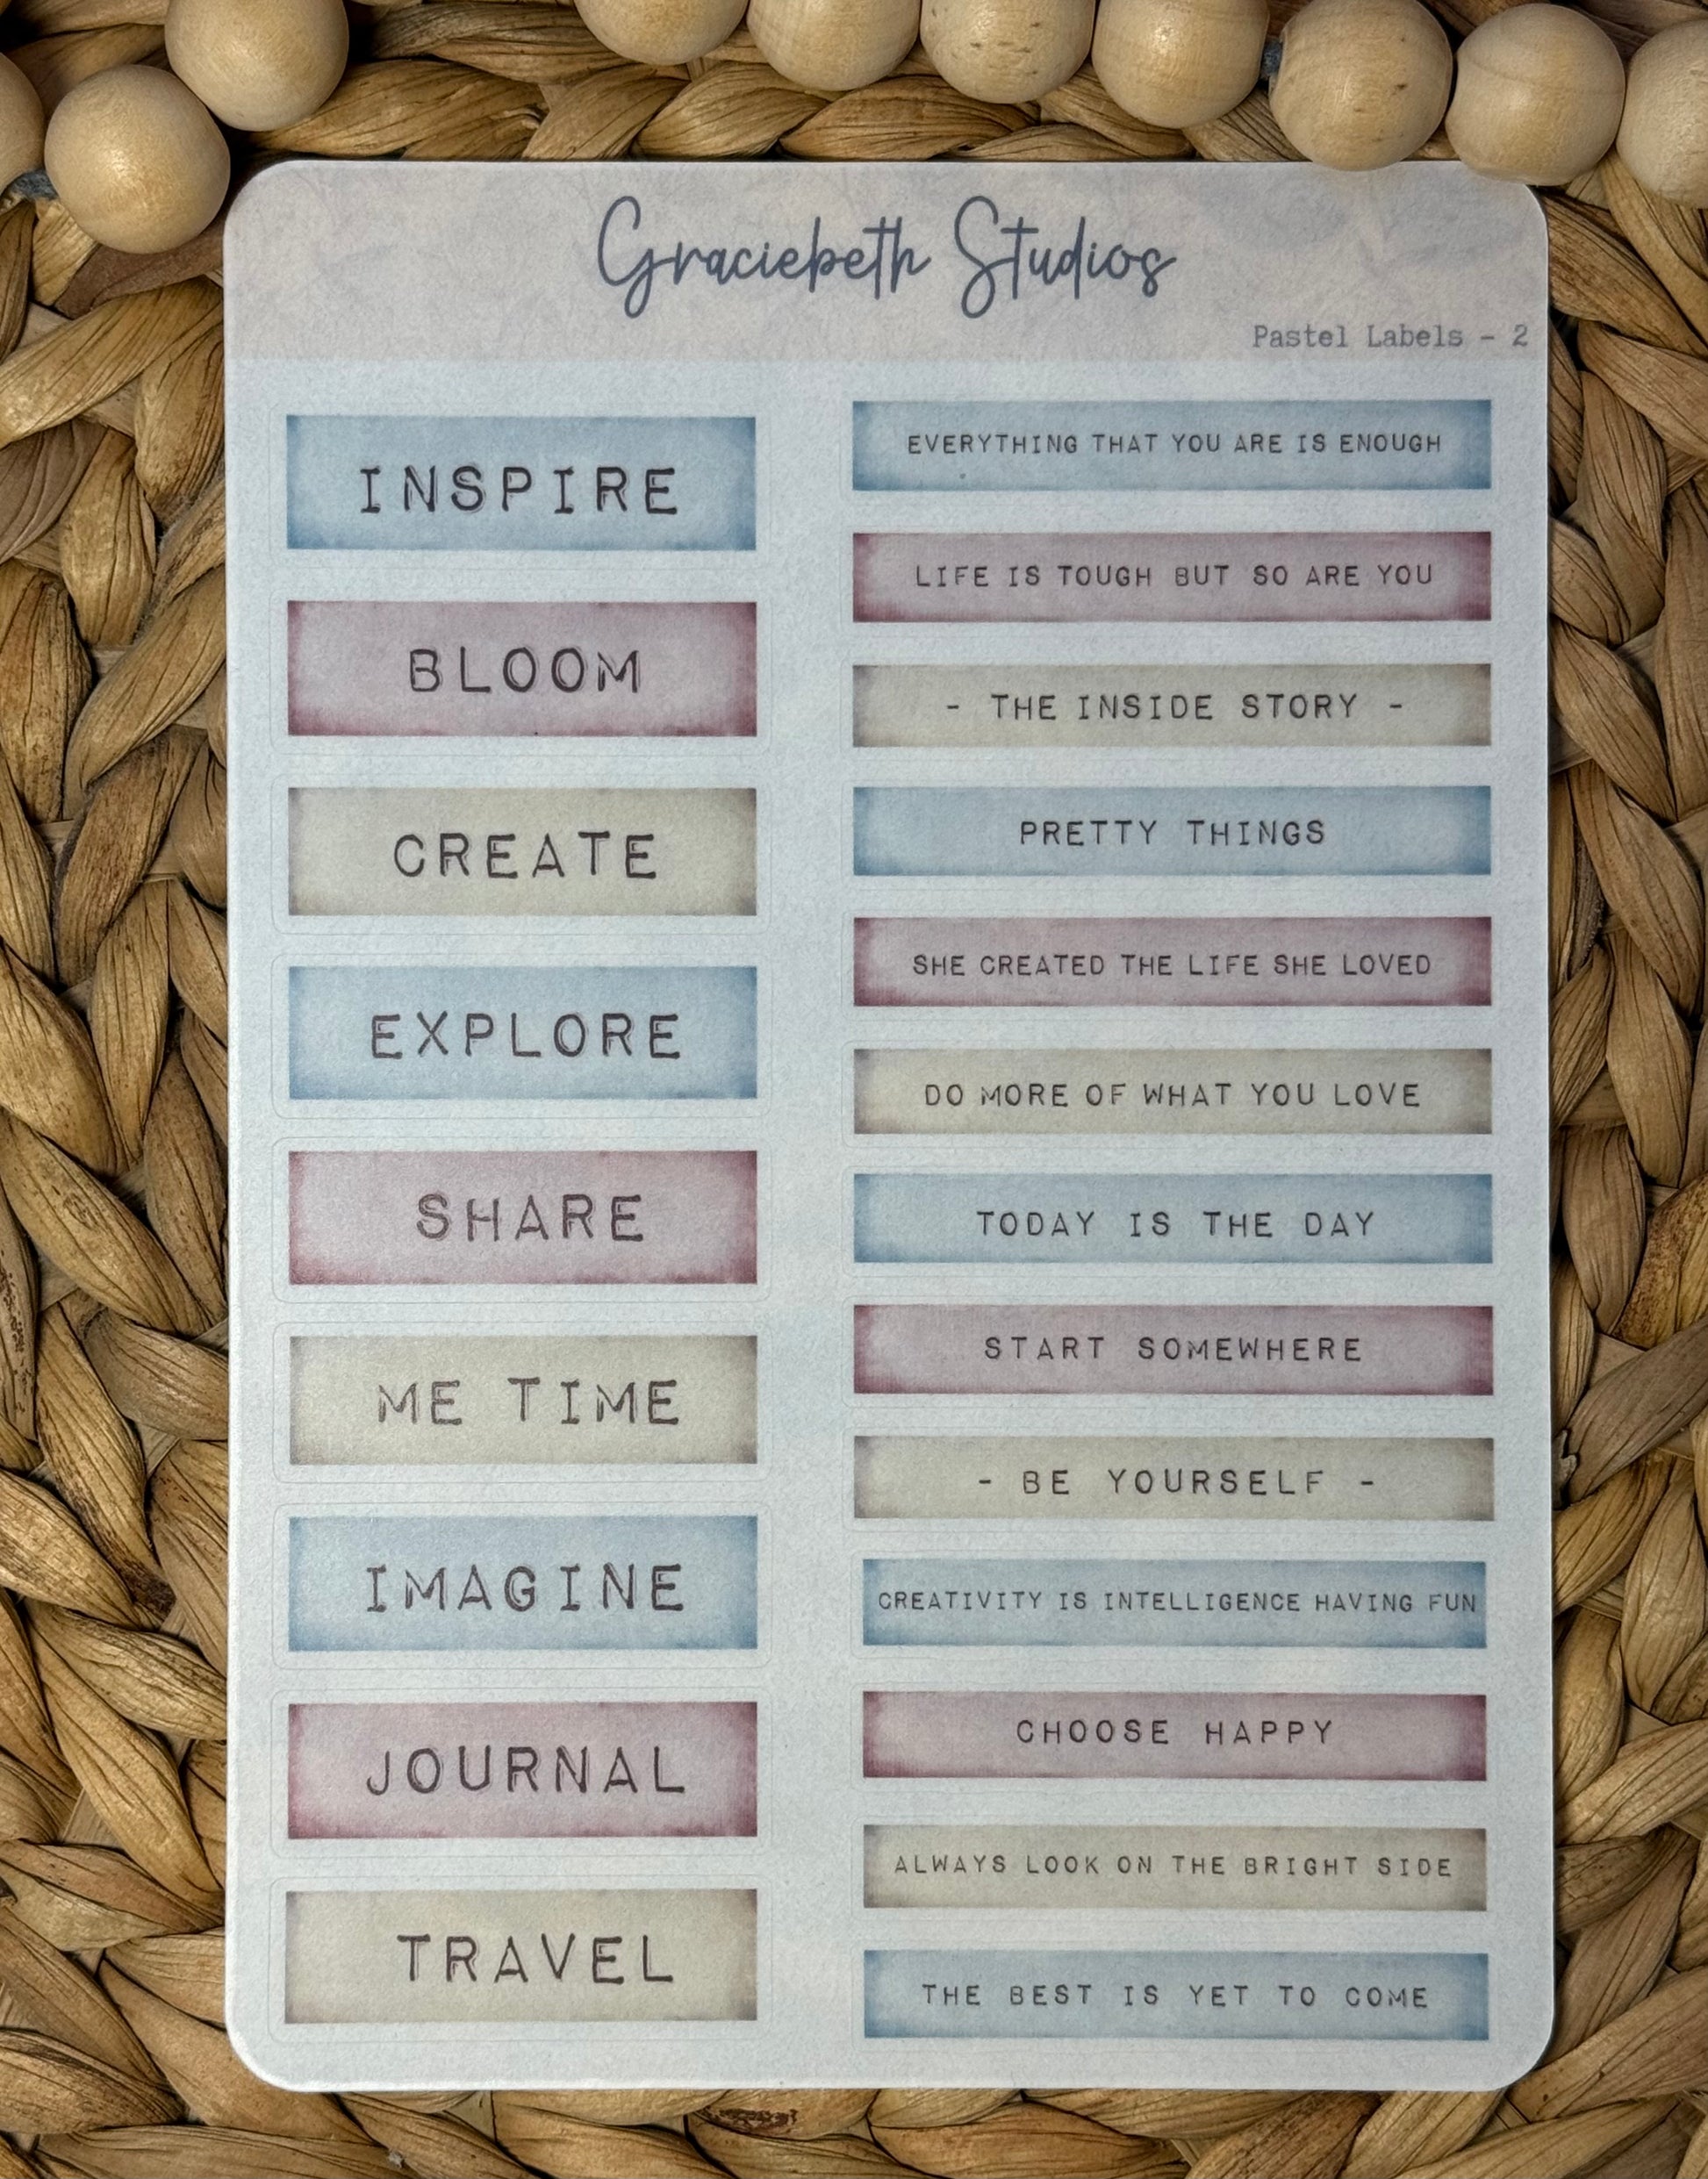 Graciebeth Studios
Pastel Labels - 2
INSPIRE
BLOOM
CREATE
EXPLORE
SHARE
ME TIME
IMAGINE
JOURNAL
TRAVEL
EVERYTHING THAT YOU ARE IS ENOUGH
LIFE IS TOUGH BUT SO ARE YOU
- THE INSIDE STORY -
PRETTY THINGS
SHE CREATED THE LIFE SHE LOVED
DO MORE OF WHAT YOU LOVE
TODAY IS THE DAY
START SOMEWHERE
- BE YOURSELF -
CREATIVITY IS INTELLIGENCE HAVING FUN
CHOOSE HAPPY
ALWAYS LOOK ON THE BRIGHT SIDE
THE BEST IS YET TO COME